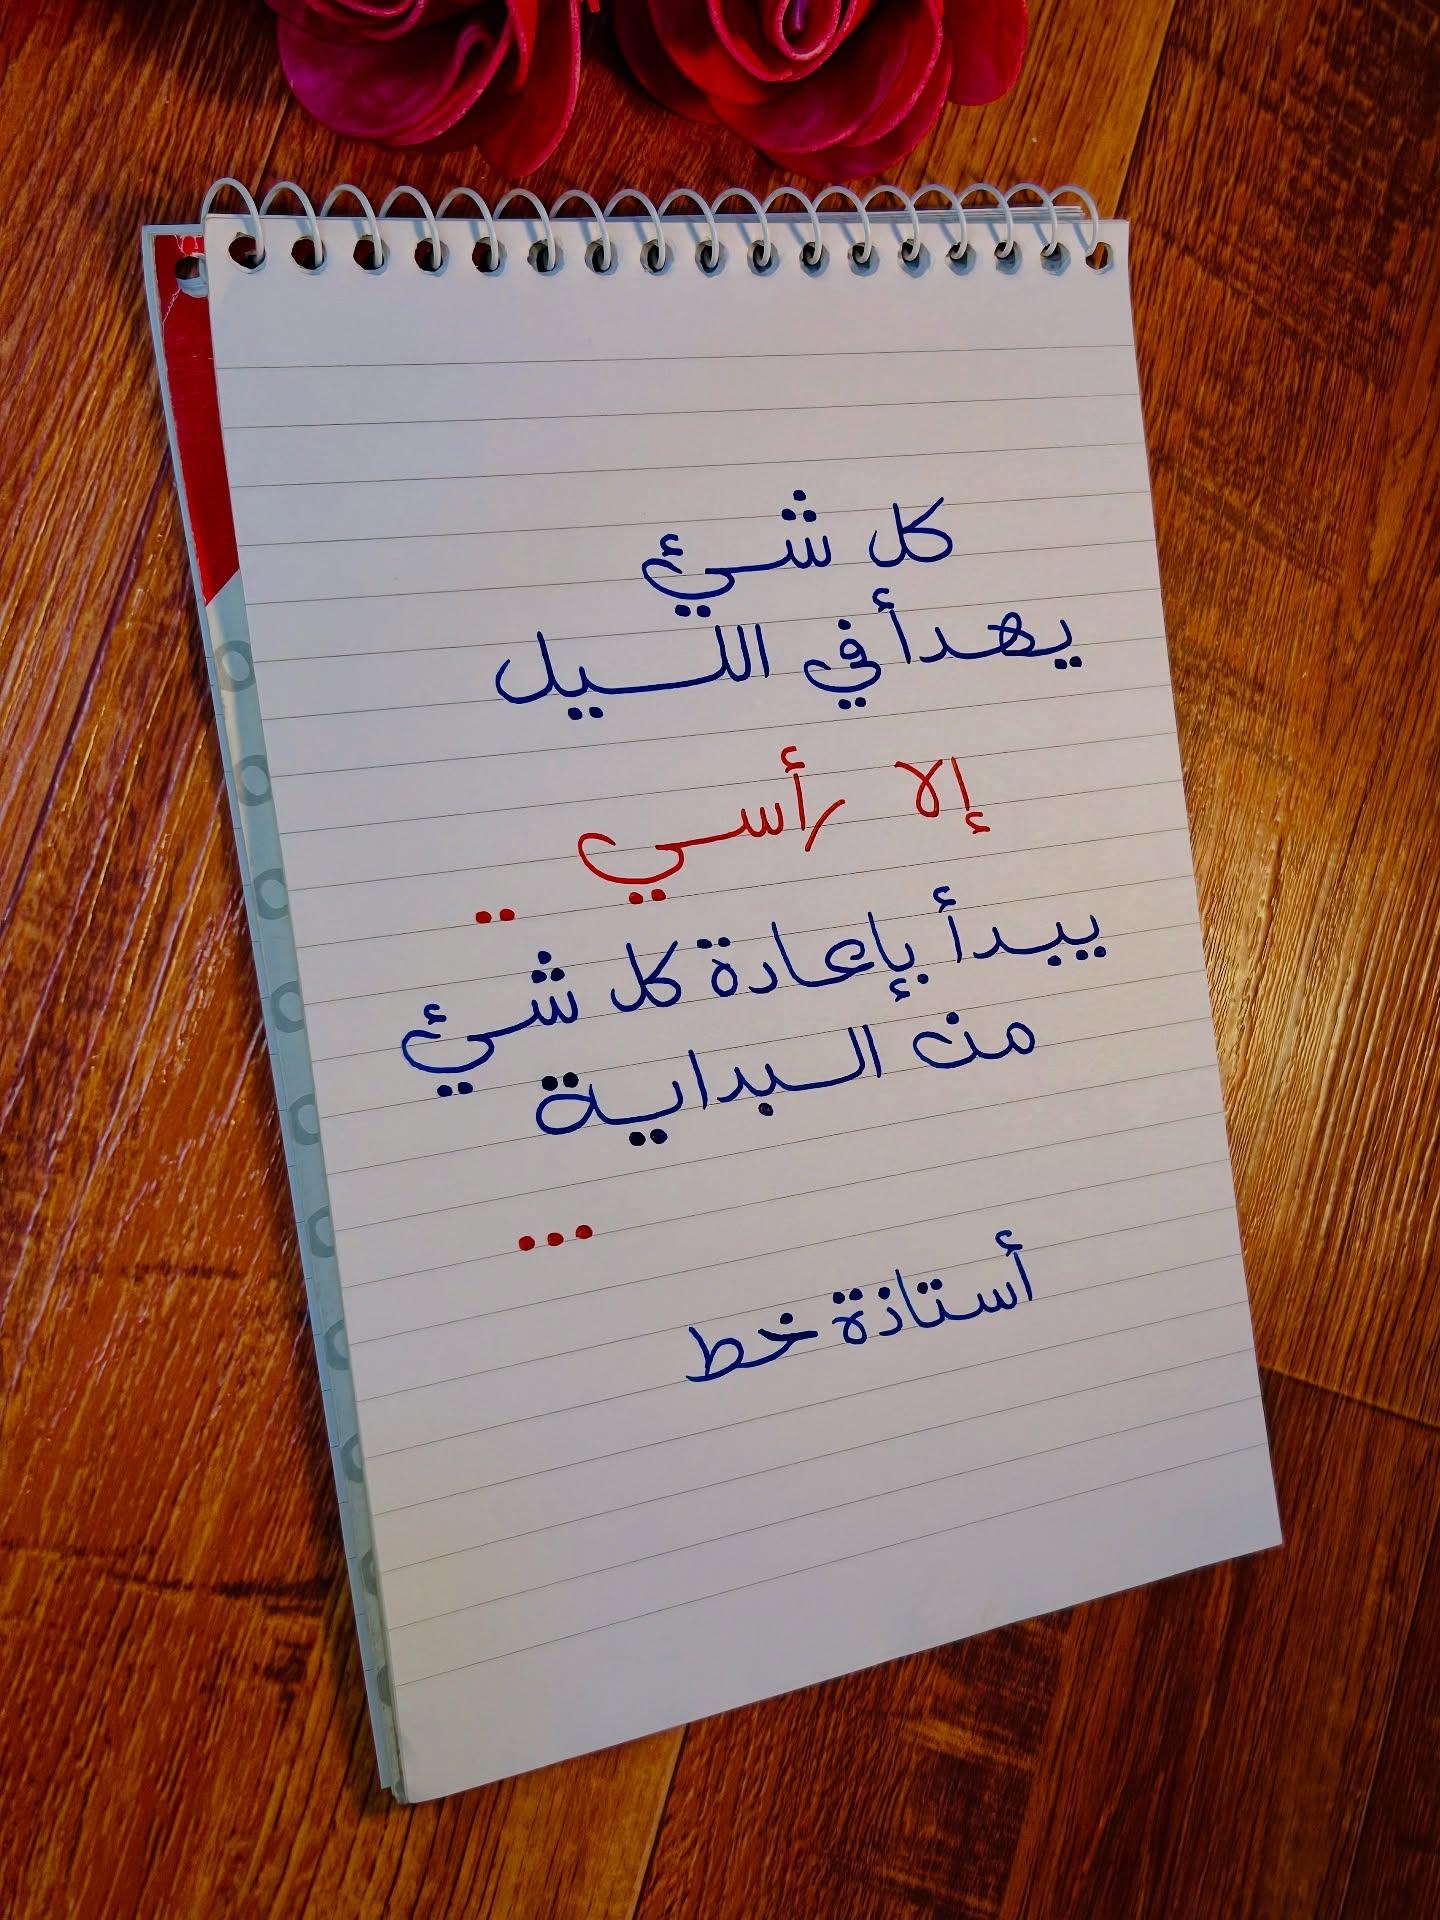 كل شيئ
يهدأ في الليل
إلا رأسي ..
يبدأ بإعادة كل شيئ
من البداية
...
أستاذة خط